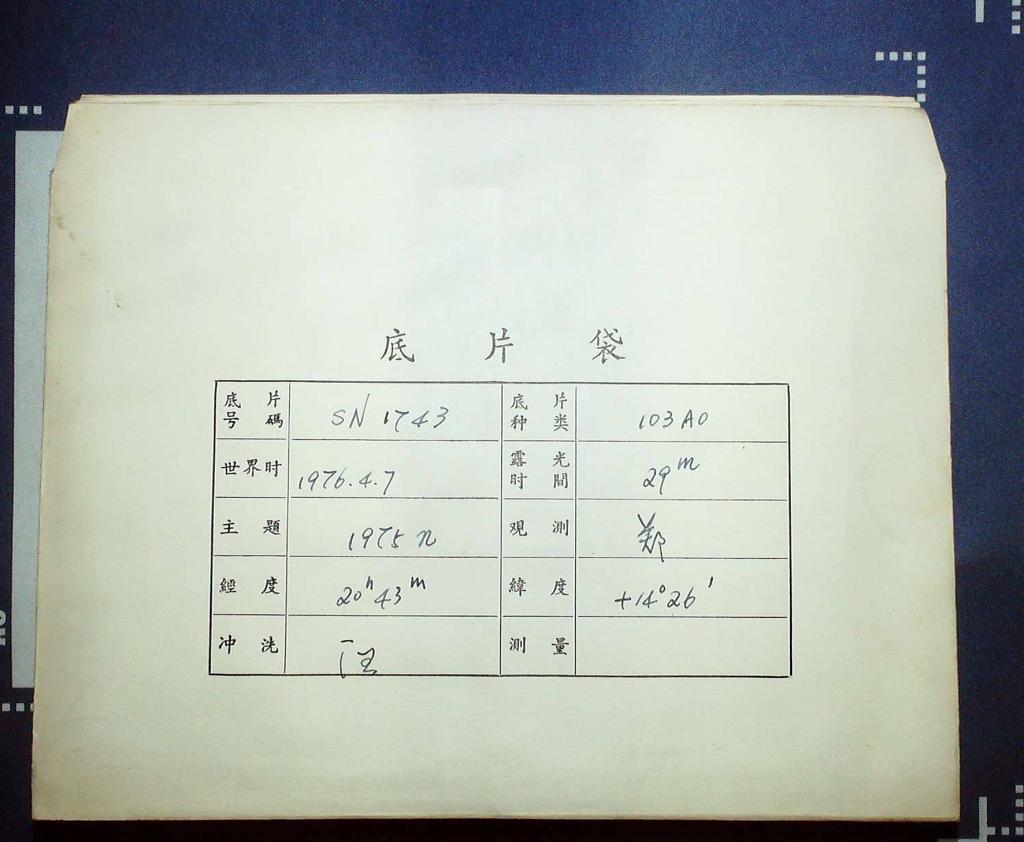 底片袋
底片号碼 SN 1743 底片种类 103A0
世界时 1976.4.7 露光时間 29m
主題 1975 n 观測 郑
經度 20h43m 緯度 +14°26'
冲洗 測量